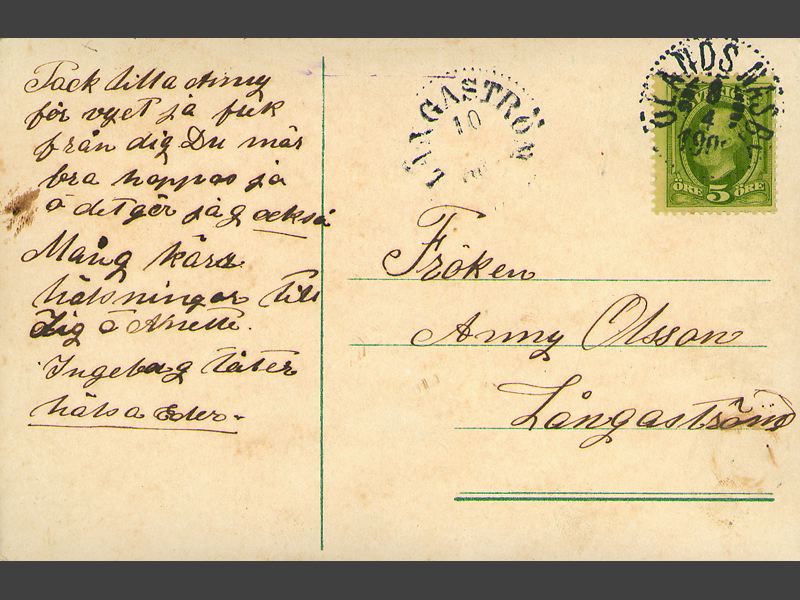 Tack lilla Anny
för vyet ja fick
från dig Du mår
bra hoppas ja
å det gör jag också
Mång kära
hälsningar till
dig å Anette.
Ingeborg låter
hälsa Eder.
LÅNGASTRÖM
10
ÖLANDS
4
SVERIGE
ÖRE 5 ÖRE
Fröken
Anny Olsson
Långaström